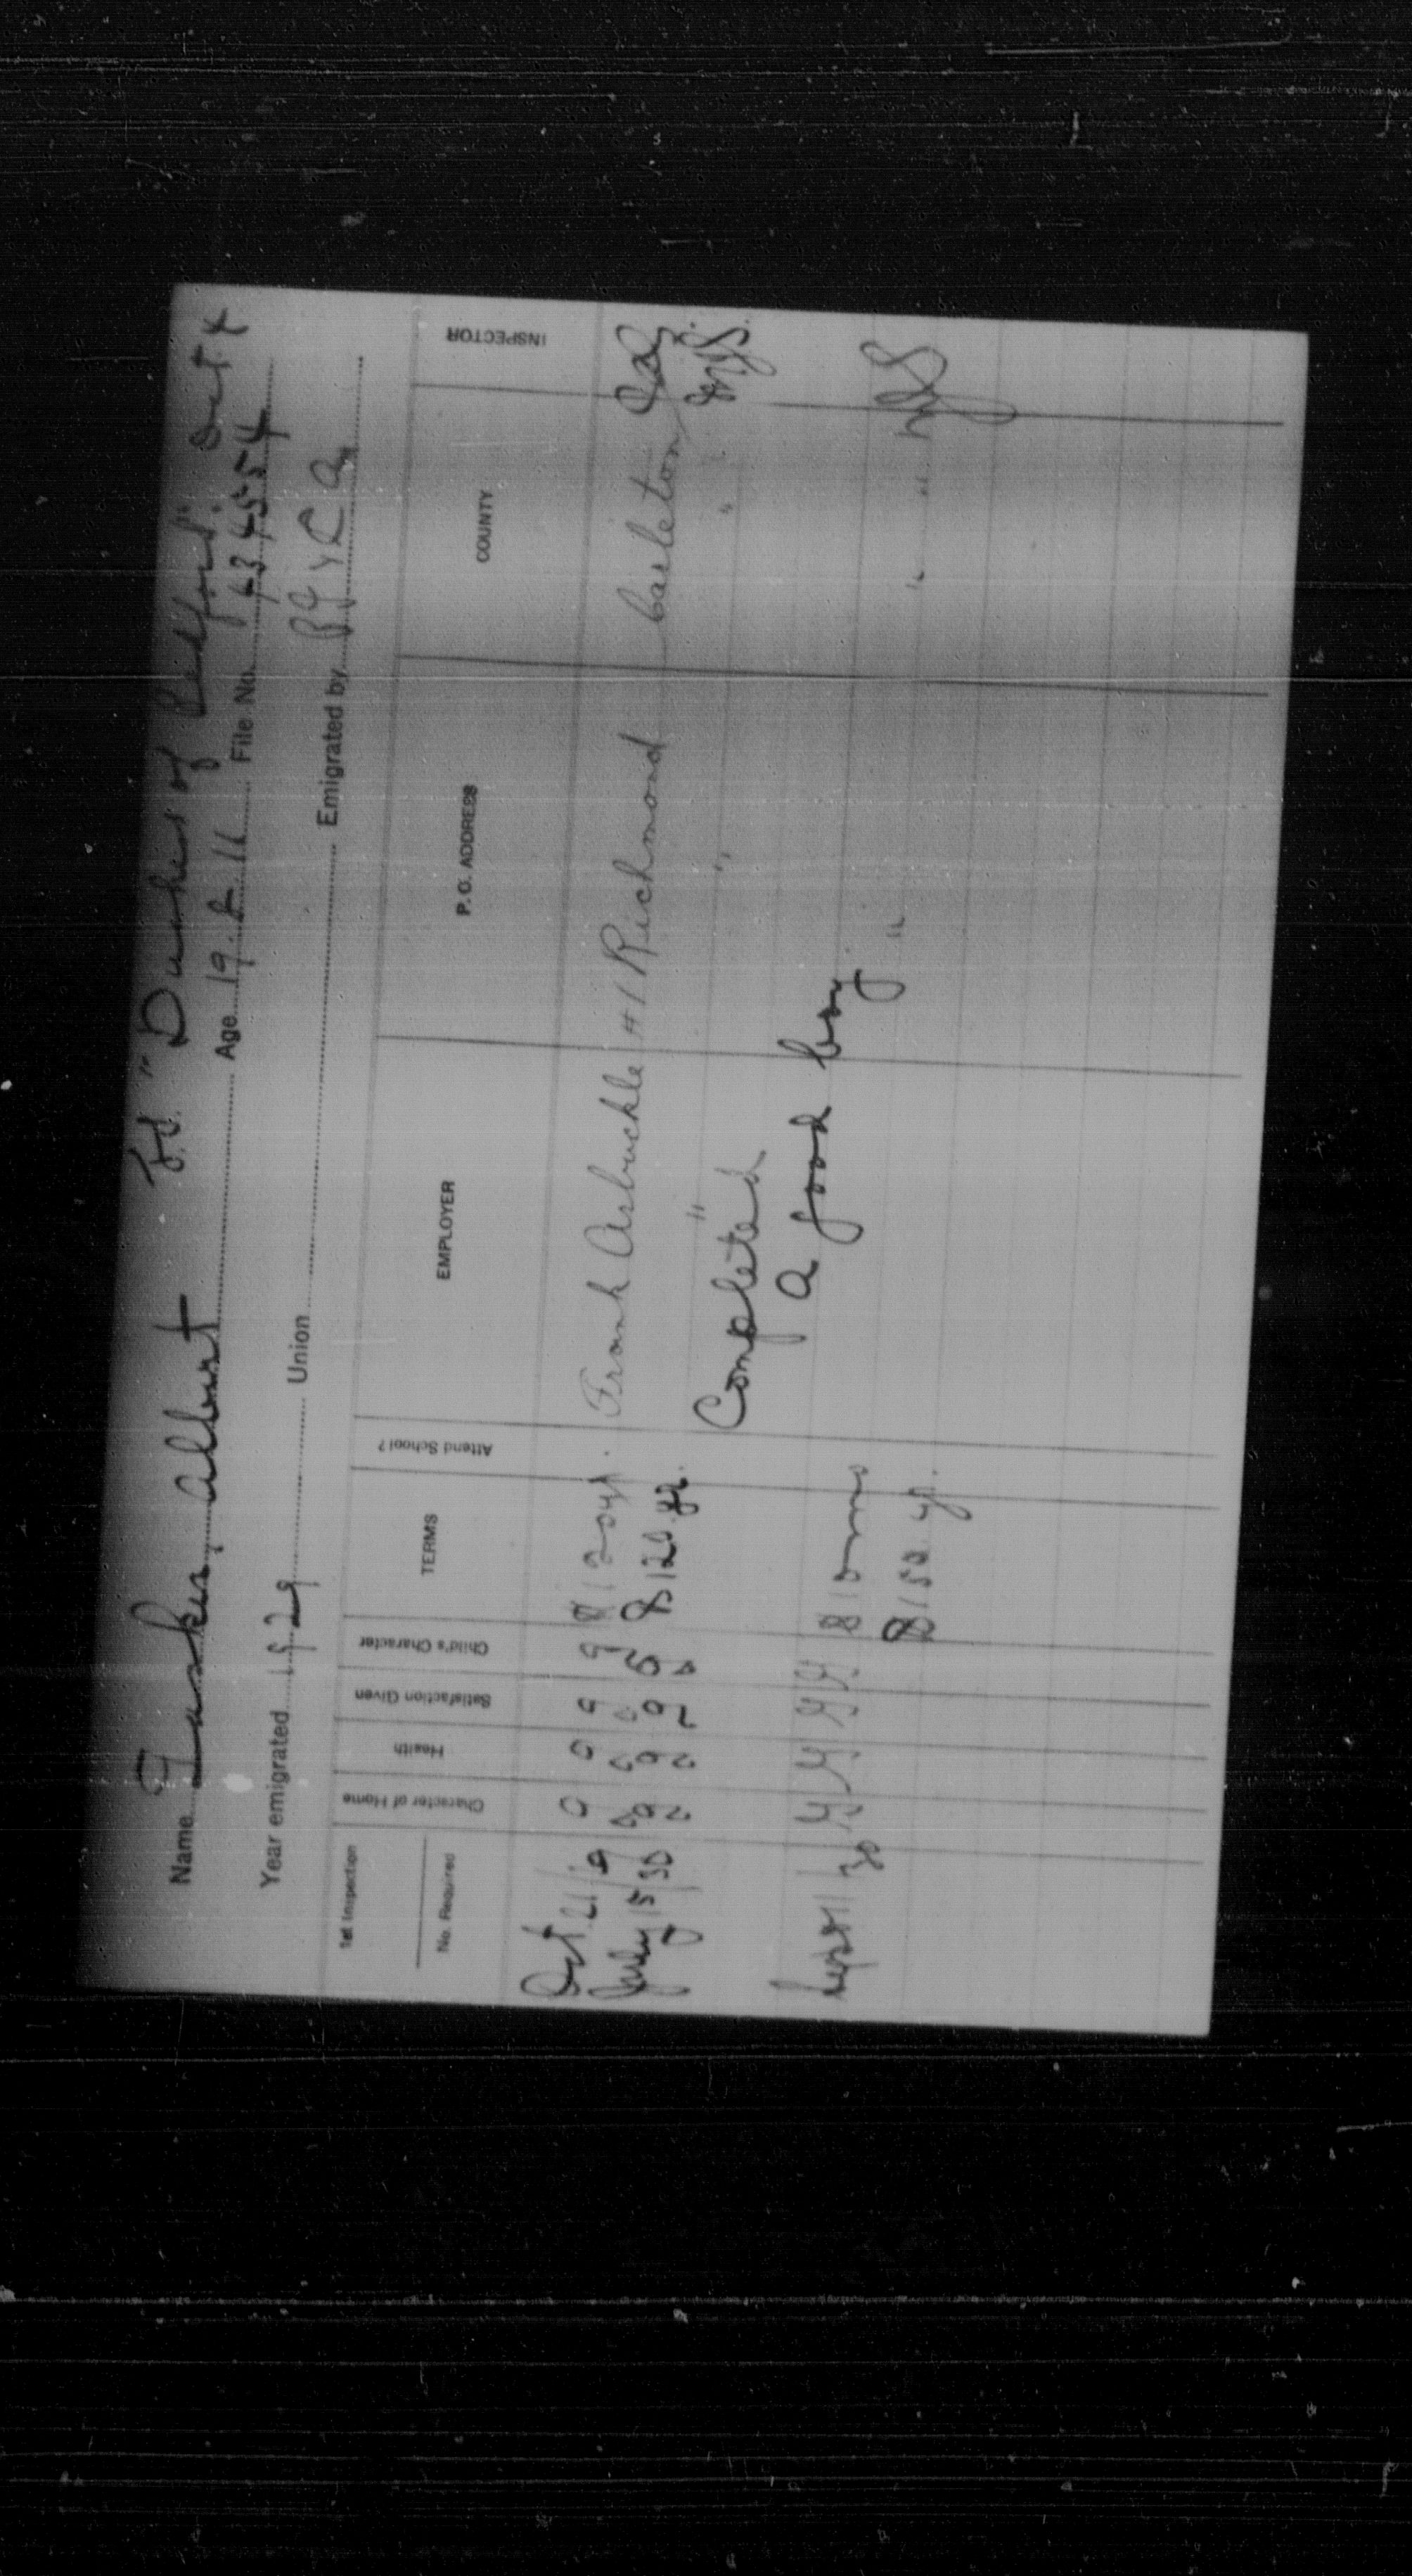 Name Tasker, Albert H. "Duchess of Bedford" Oct 4
Age 19. 8.11 File No. 434554
Year emigrated 1929 Union Emigrated by
1st Inspection No. Required Character of Home Health Satisfaction Given Child's Character TERMS Attend School? EMPLOYER P.O. ADDRESS COUNTY INSPECTOR
Oct. 21/29 $120 yr. Frank Arbuckle #1 Richmond Carleton
July 15/30 $120. yr. " " "
Completed
a good boy
Sept 11/30 G G G G $10 mo
$150 yr. " " "